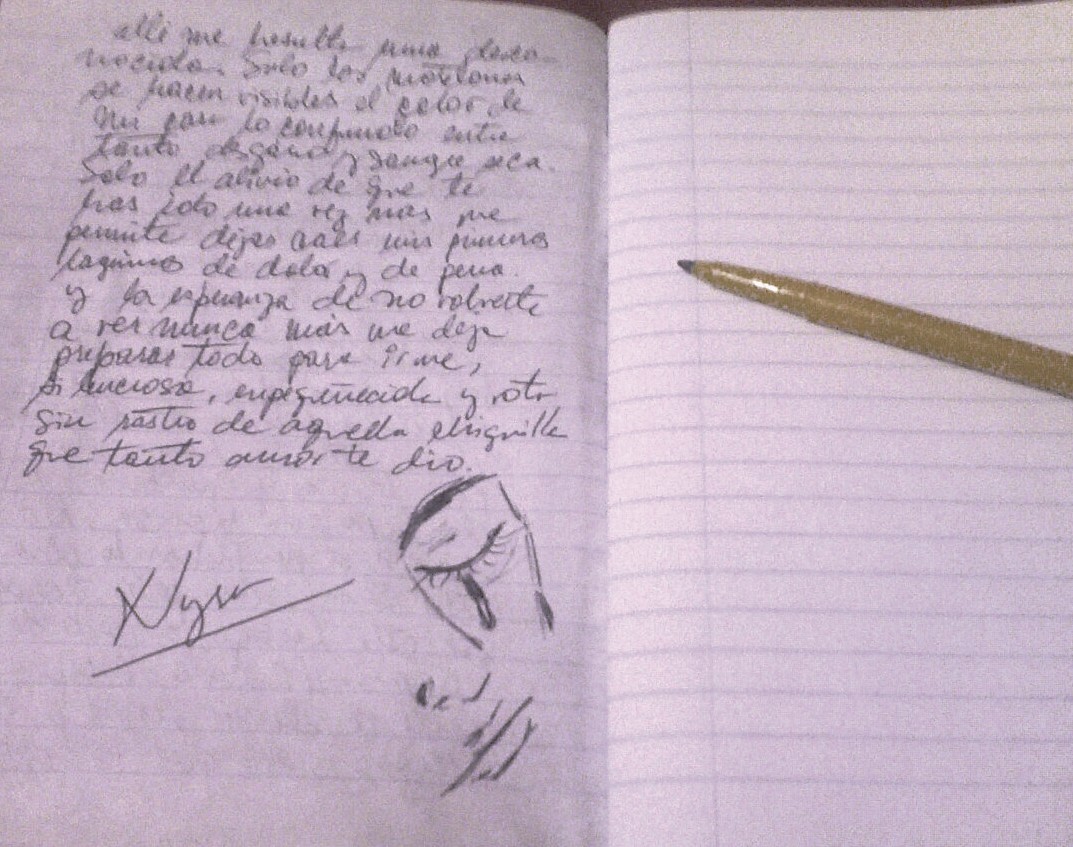 alli me resulta una desco-
nocida. Solo los moretones
se hacen visibles el color de
mi cara lo confundo entre
tanto desgano y sangre seca.
Solo el alivio de que te
has ido una vez mas me
permite dejar caer mis primeras
lagrimas de dolor y de pena.
y la esperanza de no volverte
a ver nunca más me deja
preparar todo para irme,
silenciosa, empequeñecida y rota
sin rastro de aquella chiquilla
que tanto amor te dio.